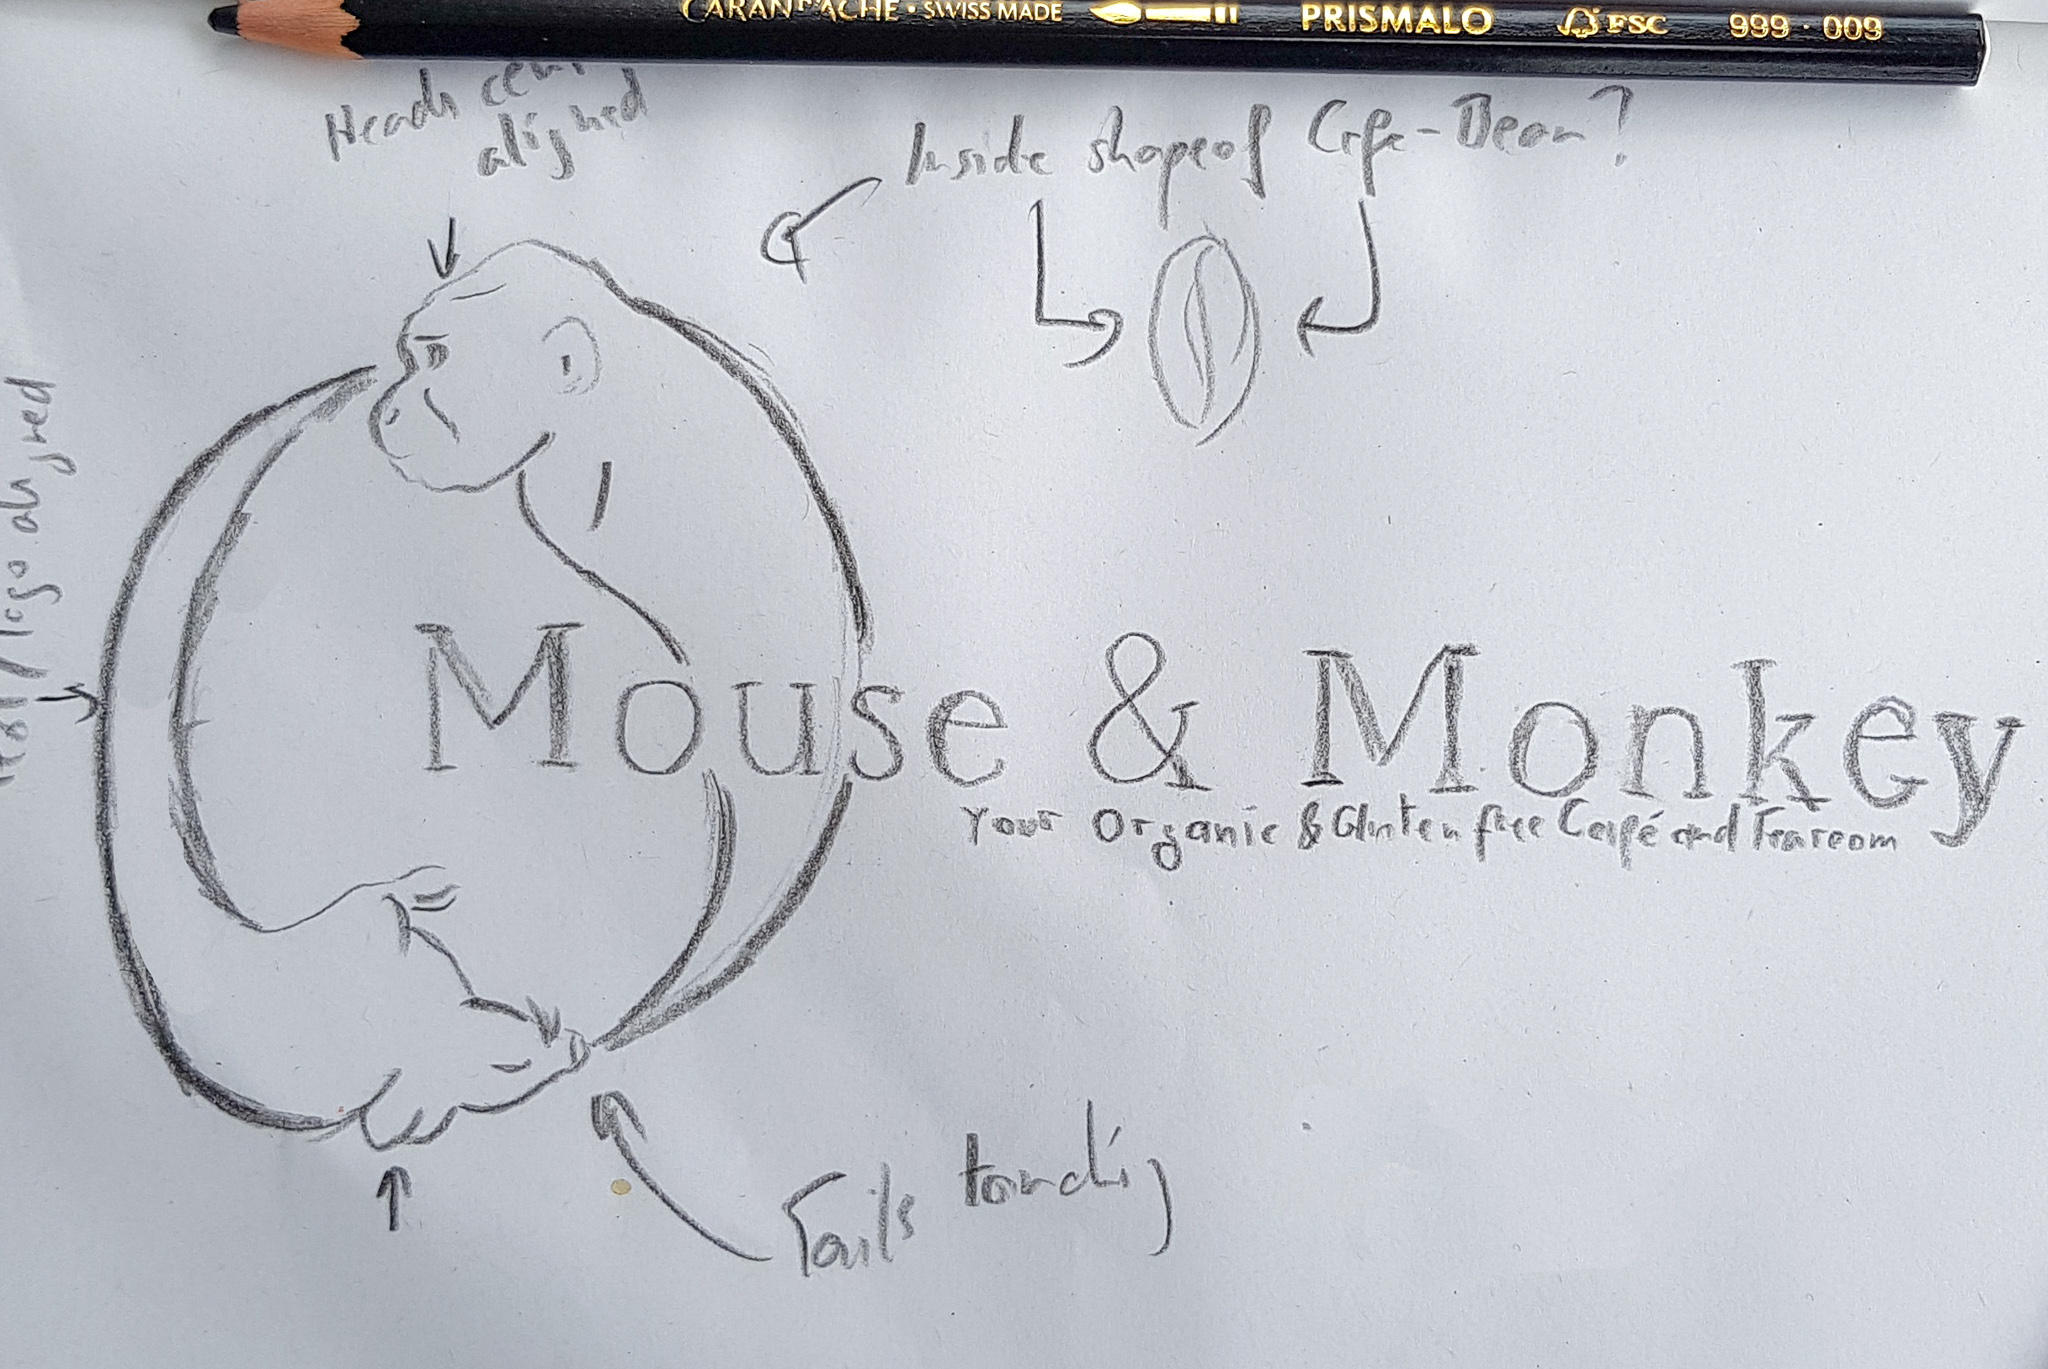 CARAN D'ACHE · SWISS MADE PRISMALO FSC 999 · 009
Heads
aligned
Inside shape of Cafe-Bean?
logo aligned
Mouse & Monkey
Your Organic & Gluten free Café and Tearoom
Tails touching